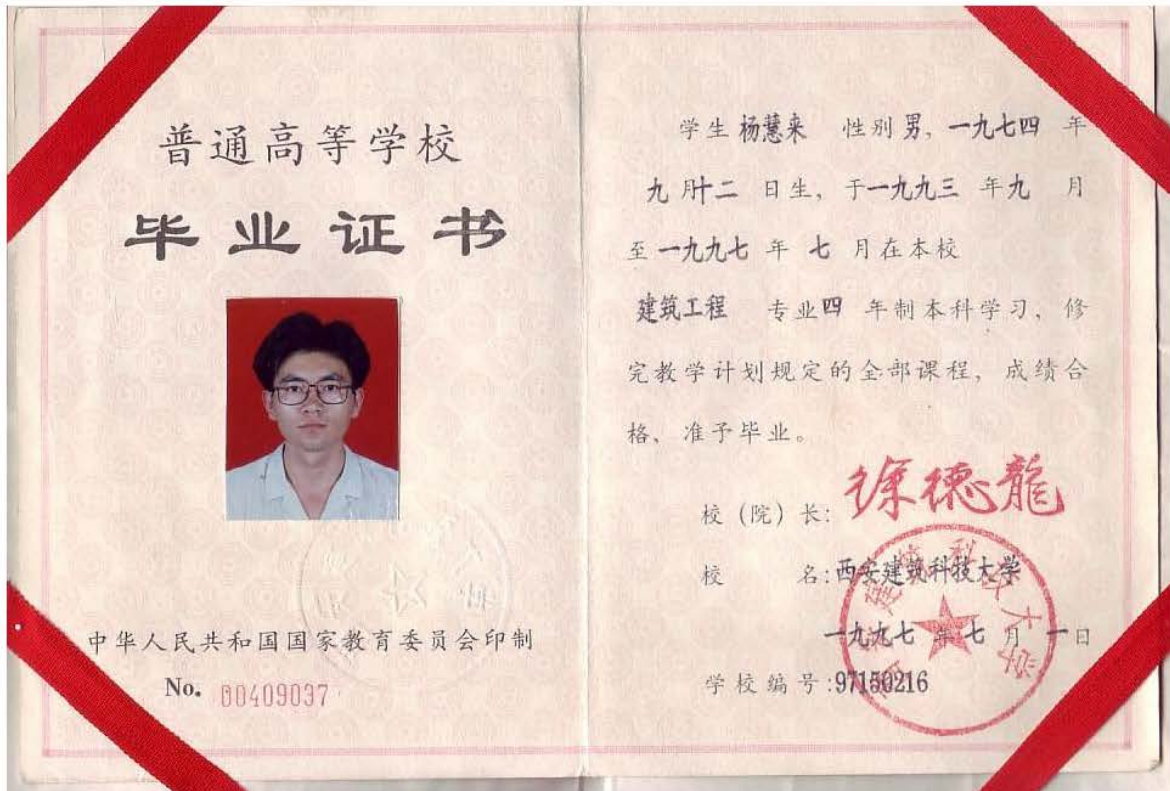 普通高等学校
毕业证书
中华人民共和国国家教育委员会印制
No. 00409037
学生 杨慧来 性别 男，一九七四 年
九 月十二 日生，于一九九三 年九 月
至一九九七 年 七 月在本校
建筑工程 专业四 年制本科学习，修
完教学计划规定的全部课程，成绩合
格，准予毕业。
校（院）长：徐德龍
校 名：西安建筑科技大学
一九九七 年 七 月 一日
学校编号：97150216
西安建筑科技大学